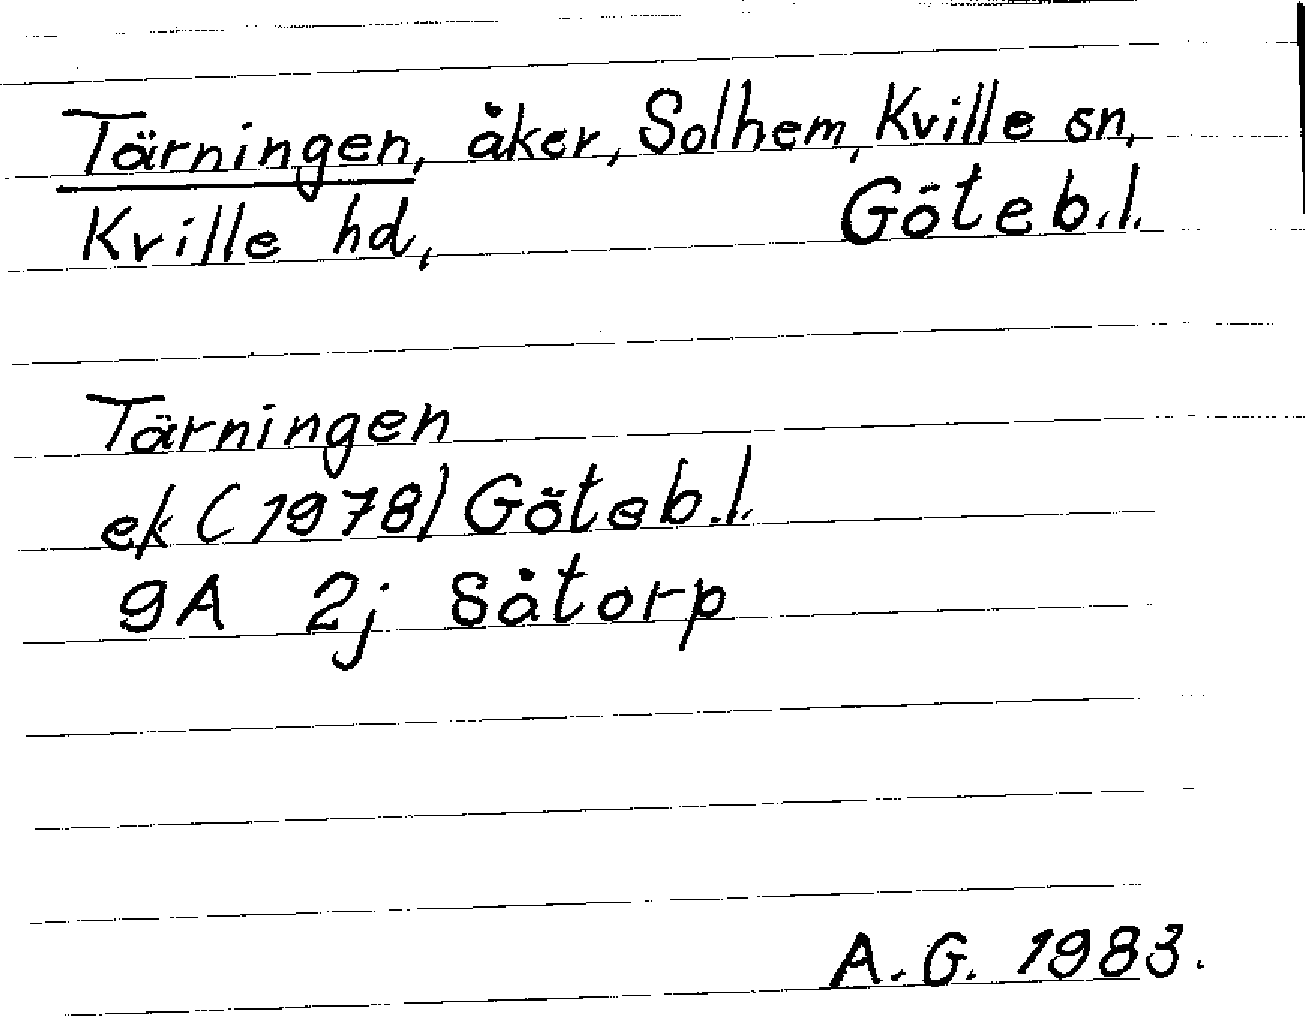 Tärningen, åker, Solhem, Kville sn,
Kville hd, Göteb.l.
Tärningen
ek (1978) Göteb.l.
9A 2j Såtorp
A.G. 1983.